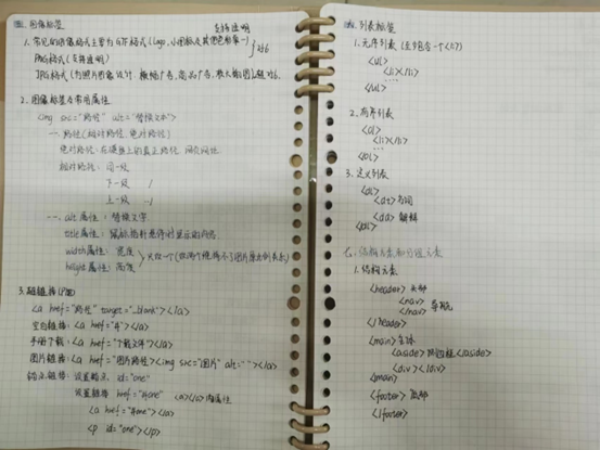 图像标签
支持透明
1. 常见的图像格式主要为GIF格式(logo,小图标及其他色彩单一) 256
PNG格式(支持透明)
JPG格式(为照片图像设计 横幅广告,商品广告,较大的图)超256.
2. 图像标签及常用属性
<img src="路径" alt="替换文本">
一. 路径(相对路径 绝对路径)
绝对路径: 在硬盘上的真正路径 网页网址
相对路径: 同一级
下一级 /
上一级 ../
一. alt属性: 替换文字
title属性: 鼠标指针悬停时显示的内容.
width属性: 宽度
height属性: 高度
3. 超链接
<a href="路径" target="_blank"></a>
空白链接: <a href="#"></a>
手册下载: <a href="下载文件"></a>
图片链接: <a href="图片路径"><img src="图片" alt=""></a>
锚点链接: 设置锚点 id="one"
设置链接 href="#one" <a></a>内属性
<a href="#one"></a>
<p id="one"></p>
列表标签
1. 无序列表 (至少包含一个<li>)
<ul>
<li></li>
...
</ul>
2. 有序列表
<ol>
<li></li>
...
</ol>
3. 定义列表
<dl>
<dt> 名词
<dd> 解释
<dl>
七. 结构元素和分组元素
1. 结构元素
<header> 头部
<nav>
</nav> 导航
</header>
<main> 主体
<aside> 侧边栏 </aside>
<div> </div>
<main>
<footer> 底部
</footer>